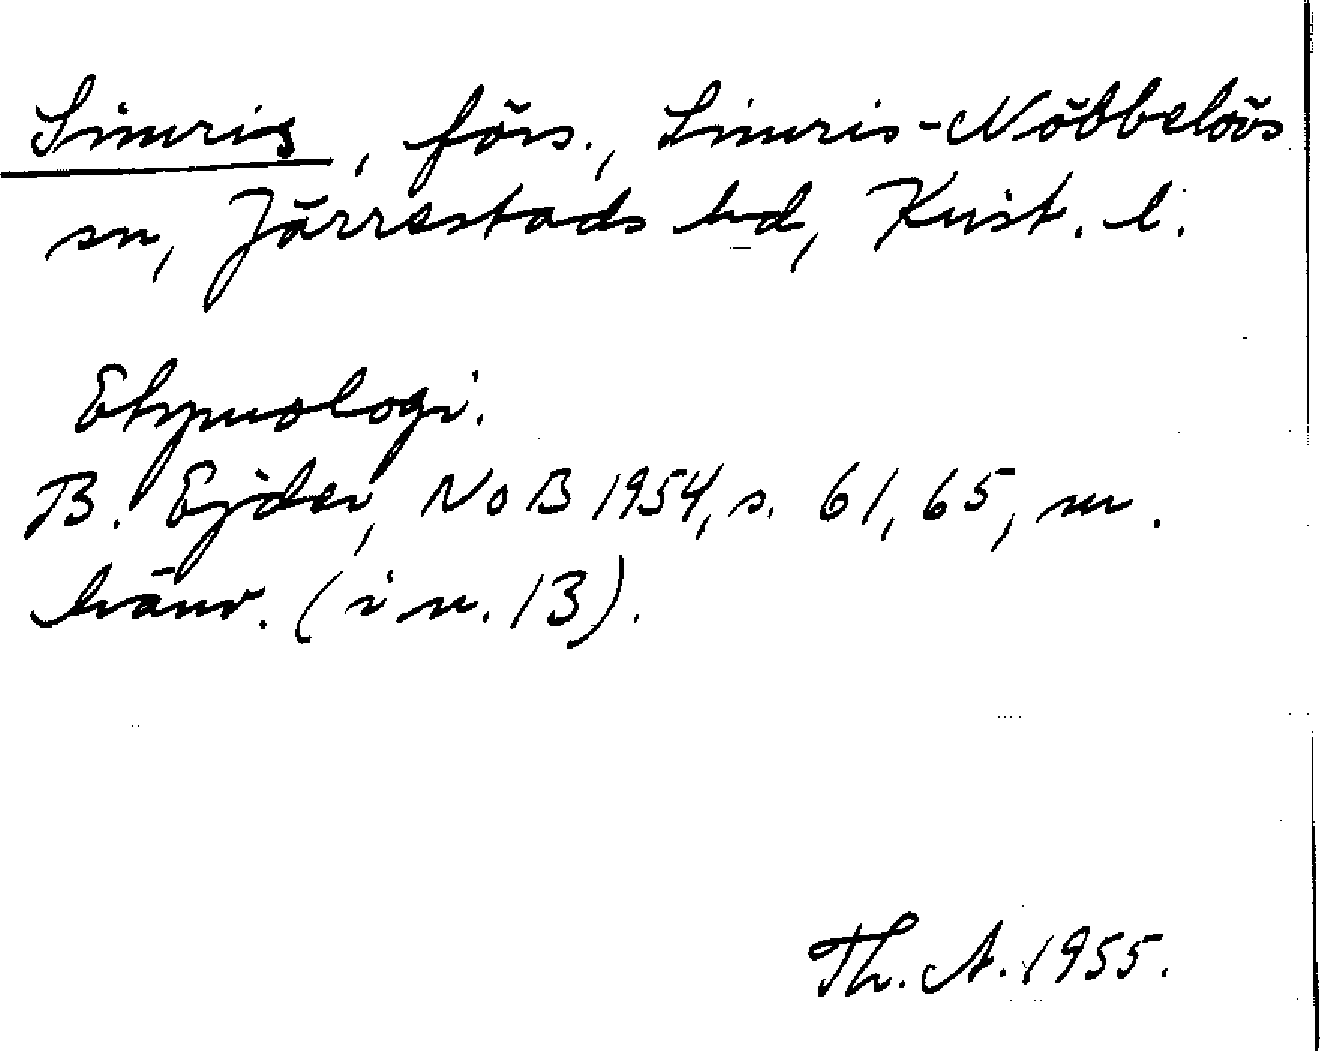 Simris, förs., Simris-Nöbbelövs
sn, Järrestads hd, Krist. l.
Etymologi.
B. Ejder, NoB 1954, s. 61, 65, m.
hänv. (i n. 13).
Th. A. 1955.